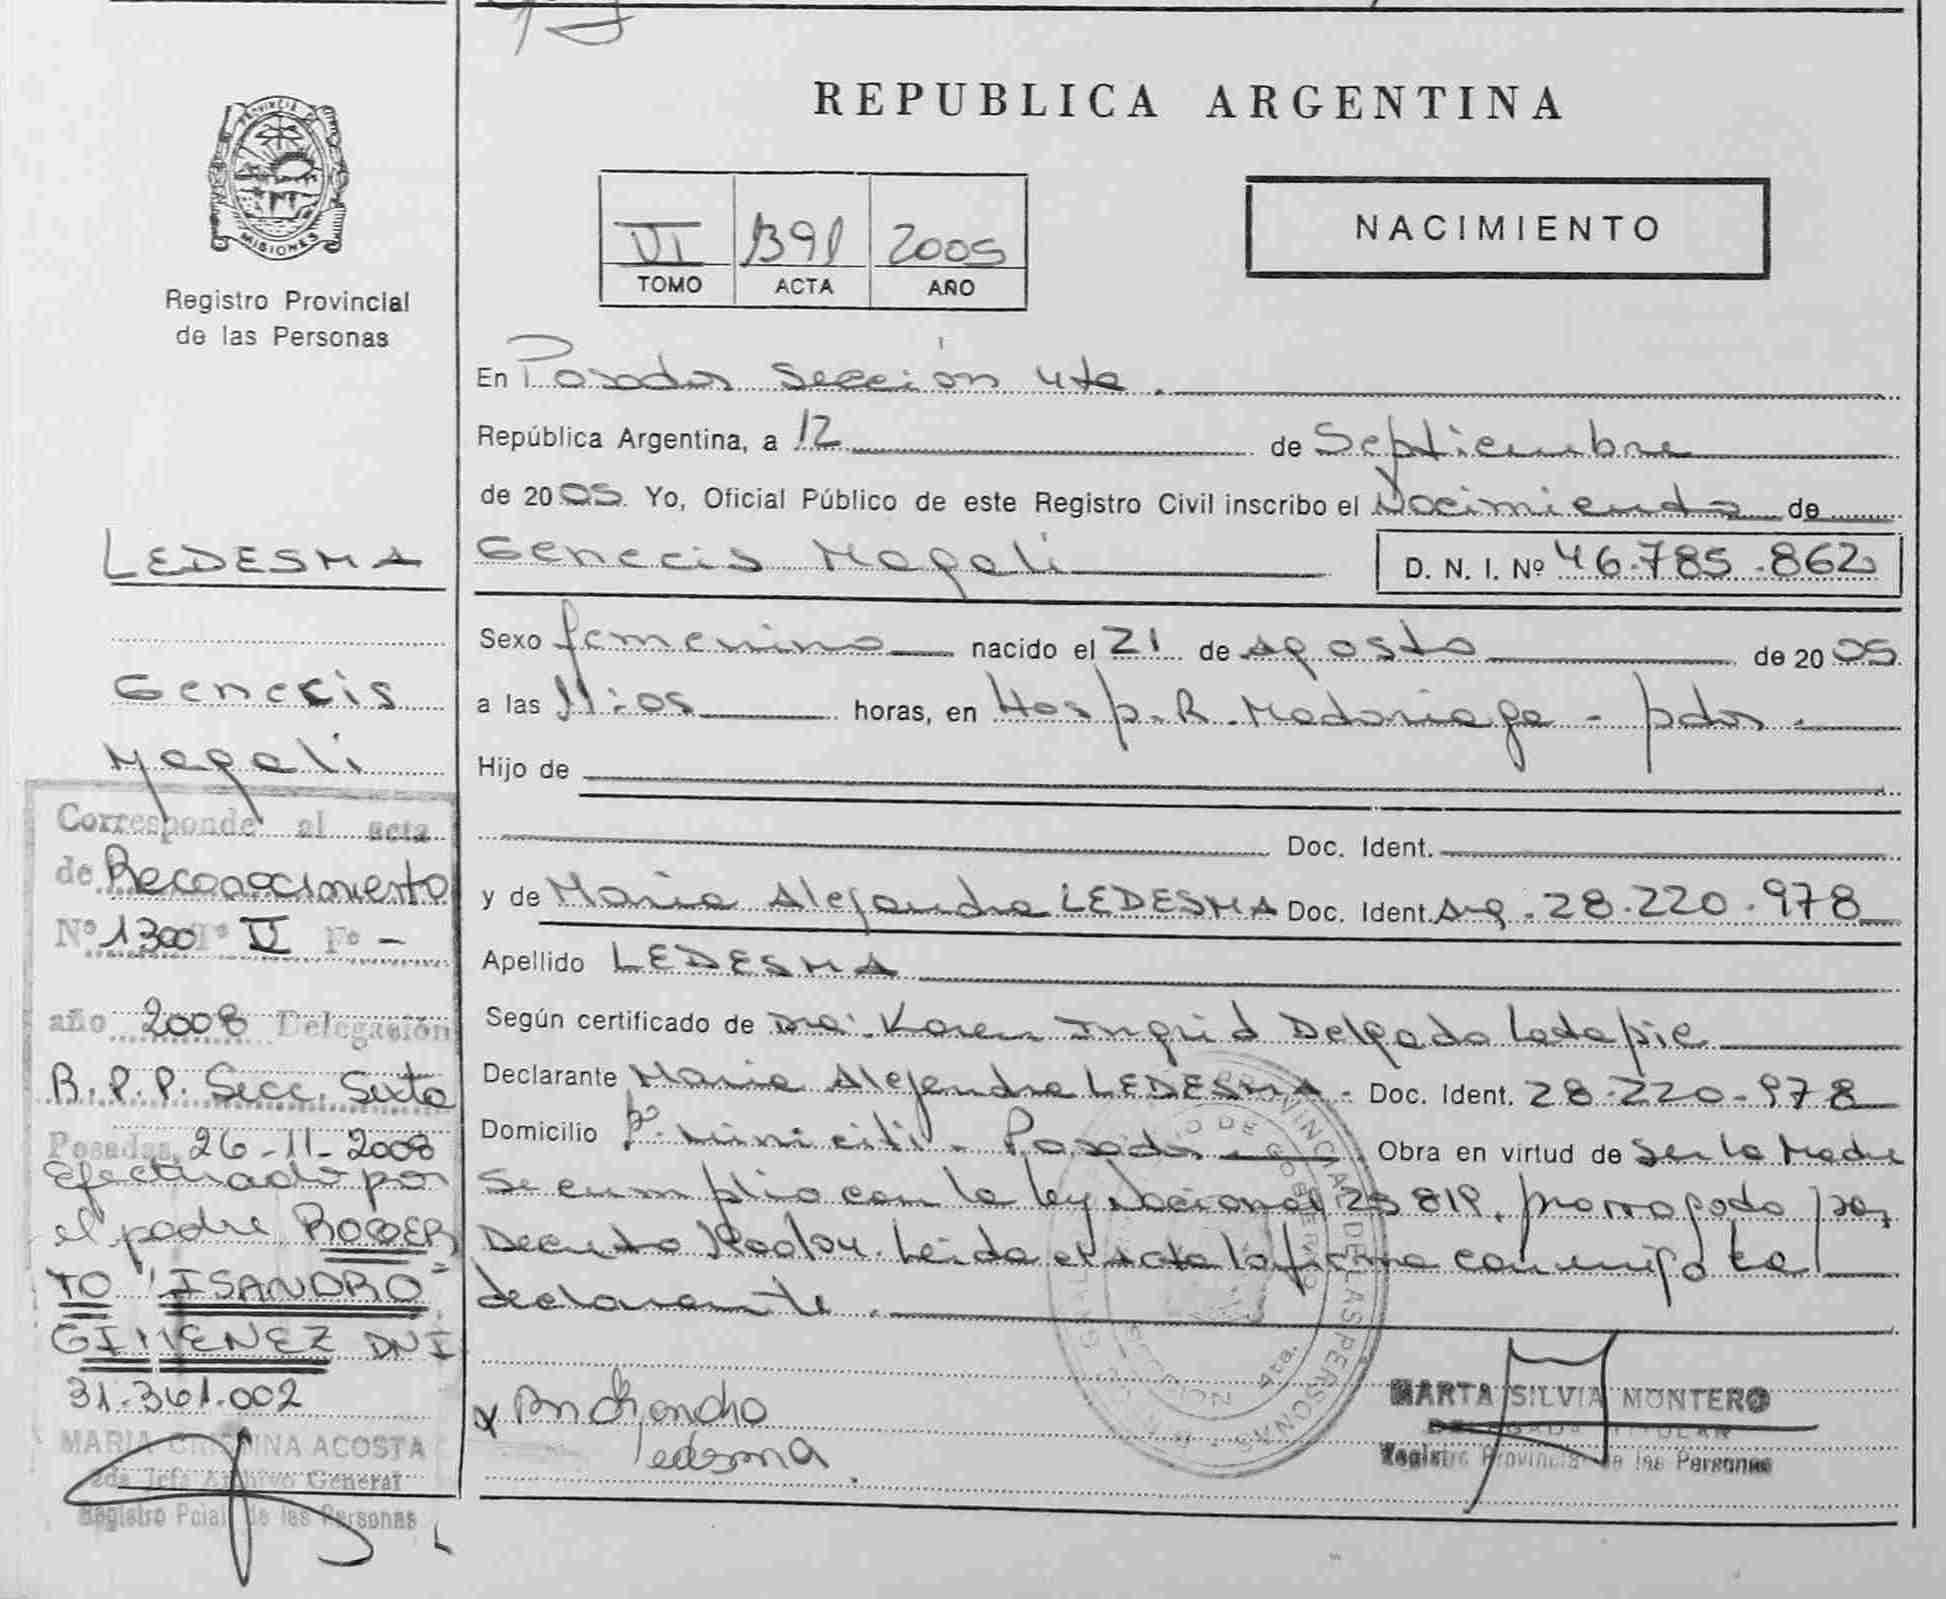 REPUBLICA ARGENTINA
PROVINCIA DE
MISIONES
Registro Provincial
de las Personas
VI 1391 2005
TOMO ACTA AÑO
NACIMIENTO
En Posadas sección 4ta.
República Argentina, a 12 de Septiembre
de 2005 Yo, Oficial Público de este Registro Civil inscribo el Nacimiento de
Genecis Magali D. N. I. Nº 46.785.862
Sexo femenino nacido el 21 de agosto de 2005
a las 11:05 horas, en Hosp. R. Madariaga - pdas.
Hijo de
Doc. Ident.
y de Maria Alejandra LEDESMA Doc. Ident. Arg. 28.220.978
Apellido LEDESMA
Según certificado de Dra. Karen Ingrid Delgado Latapie
Declarante Maria Alejandra LEDESMA. Doc. Ident. 28.220.978
Domicilio Bº. Miniciti - Posadas Obra en virtud de ser la Madre
Se cumplio con la ley Nacional 25819, prorrogada por
Decreto Leida el acta la firma conmigo La
declarante.
ledesma
MARTA SILVIA MONTERO
DELEGADA TITULAR
Registro Provincial de las Personas
LEDESMA
Genecis
Magali
Corresponde al acta
de Reconocimiento
Nº 1300 Tº V Fº -
año 2008 Delegación
R.P.P. Secc. Sexta
Posadas, 26-11-2008
Efectuado por
el padre ROGER
TO "ISANDRO"
GIMENEZ DNI
31.361.002
MARIA CRISTINA ACOSTA
2da Jefa Archivo General
Registro Pcial de las Personas